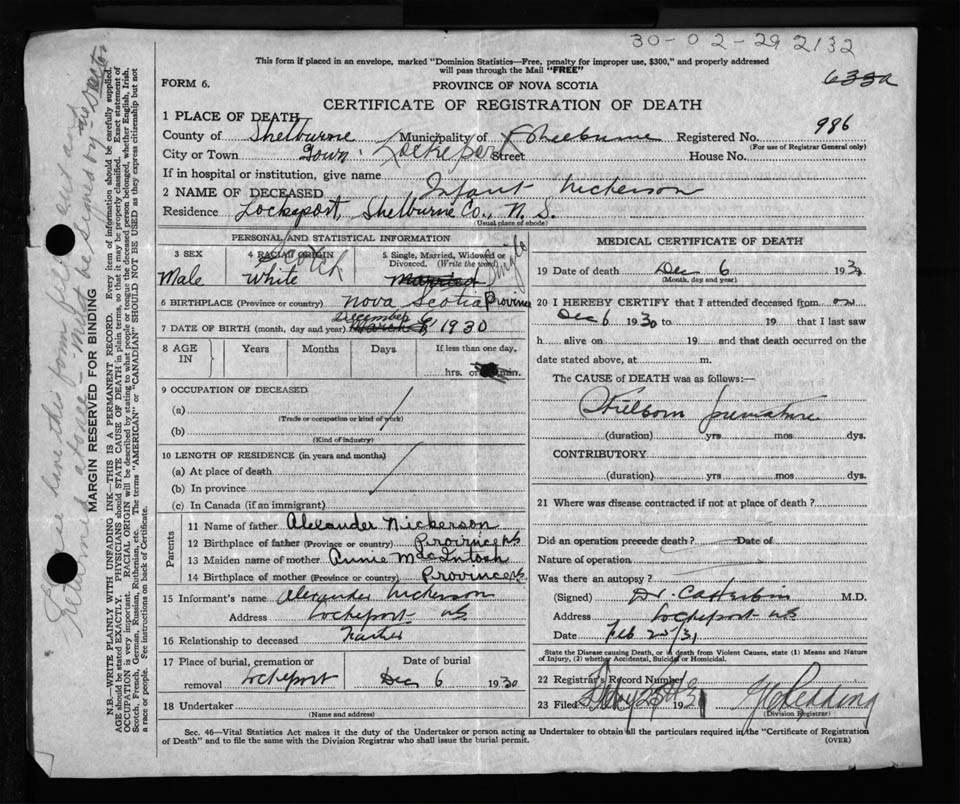 30-02-29 2132
This form if placed in an envelope, marked "Dominion Statistics—Free, penalty for improper use, $300," and properly addressed
will pass through the Mail "FREE"
FORM 6.
PROVINCE OF NOVA SCOTIA
CERTIFICATE OF REGISTRATION OF DEATH
1 PLACE OF DEATH
County of Shelburne Municipality of Shelburne Registered No. 986
(For use of Registrar General only)
City or Town Town Lockeport Street House No.
If in hospital or institution, give name
2 NAME OF DECEASED Infant Nickerson
Residence Lockeport, Shelburne Co., N. S.
(Usual place of abode)
PERSONAL AND STATISTICAL INFORMATION
3 SEX 4 RACIAL ORIGIN 5 Single, Married, Widowed or Divorced. (Write the word)
Male White Scotch Married Single
6 BIRTHPLACE (Province or country) Nova Scotia Province
7 DATE OF BIRTH (month, day and year) December 6 1930
8 AGE IN Years Months Days If less than one day,
hrs. or min.
9 OCCUPATION OF DECEASED
(a)
(Trade or occupation or kind of work)
(b)
(Kind of industry)
10 LENGTH OF RESIDENCE (in years and months)
(a) At place of death
(b) In province
(c) In Canada (if an immigrant)
Parents
11 Name of father Alexander Nickerson
12 Birthplace of father (Province or country) Province NS
13 Maiden name of mother Annie McIntosh
14 Birthplace of mother (Province or country) Province NS.
15 Informant's name Alexander Nickerson
Address Lockeport NS
16 Relationship to deceased Father
17 Place of burial, cremation or removal Lockeport Date of burial Dec 6 1930
18 Undertaker
(Name and address)
MEDICAL CERTIFICATE OF DEATH
19 Date of death Dec 6 1930
(Month, day and year)
20 I HEREBY CERTIFY that I attended deceased from on
Dec 6 1930 to 19 that I last saw
h alive on 19 and that death occurred on the
date stated above, at m.
The CAUSE of DEATH was as follows:—
Stillborn premature
(duration) yrs mos dys.
CONTRIBUTORY
(duration) yrs mos dys.
21 Where was disease contracted if not at place of death?
Did an operation precede death? Date of
Nature of operation
Was there an autopsy?
(Signed) Dr. M.D.
Address Lockeport NS
Date Feb 25/31
State the Disease causing Death, or in death from Violent Causes, state (1) Means and Nature
of Injury, (2) whether Accidental, Suicidal or Homicidal.
22 Registrar's Record Number
23 Filed 1931
(Division Registrar)
Sec. 46—Vital Statistics Act makes it the duty of the Undertaker or person acting as Undertaker to obtain all the particulars required in the "Certificate of Registration
of Death" and to file the same with the Division Registrar who shall issue the burial permit.
(OVER)
MARGIN RESERVED FOR BINDING
N.B.—WRITE PLAINLY WITH UNFADING INK—THIS IS A PERMANENT RECORD. Every item of information should be carefully supplied.
AGE should be stated EXACTLY. PHYSICIANS should STATE CAUSE OF DEATH in plain terms, so that it may be properly classified. Exact statement of
OCCUPATION is very important. RACIAL ORIGIN will be described by stating to what people or tongue the deceased person belonged, whether English, Irish,
Scotch, French, German, Russian, Ruthenian, etc. The terms "AMERICAN" or "CANADIAN" SHOULD NOT BE USED as they express citizenship but not
a race or people. See instructions on back of Certificate.
Please have this form filled out and
returned at once — Must be signed by a Doctor